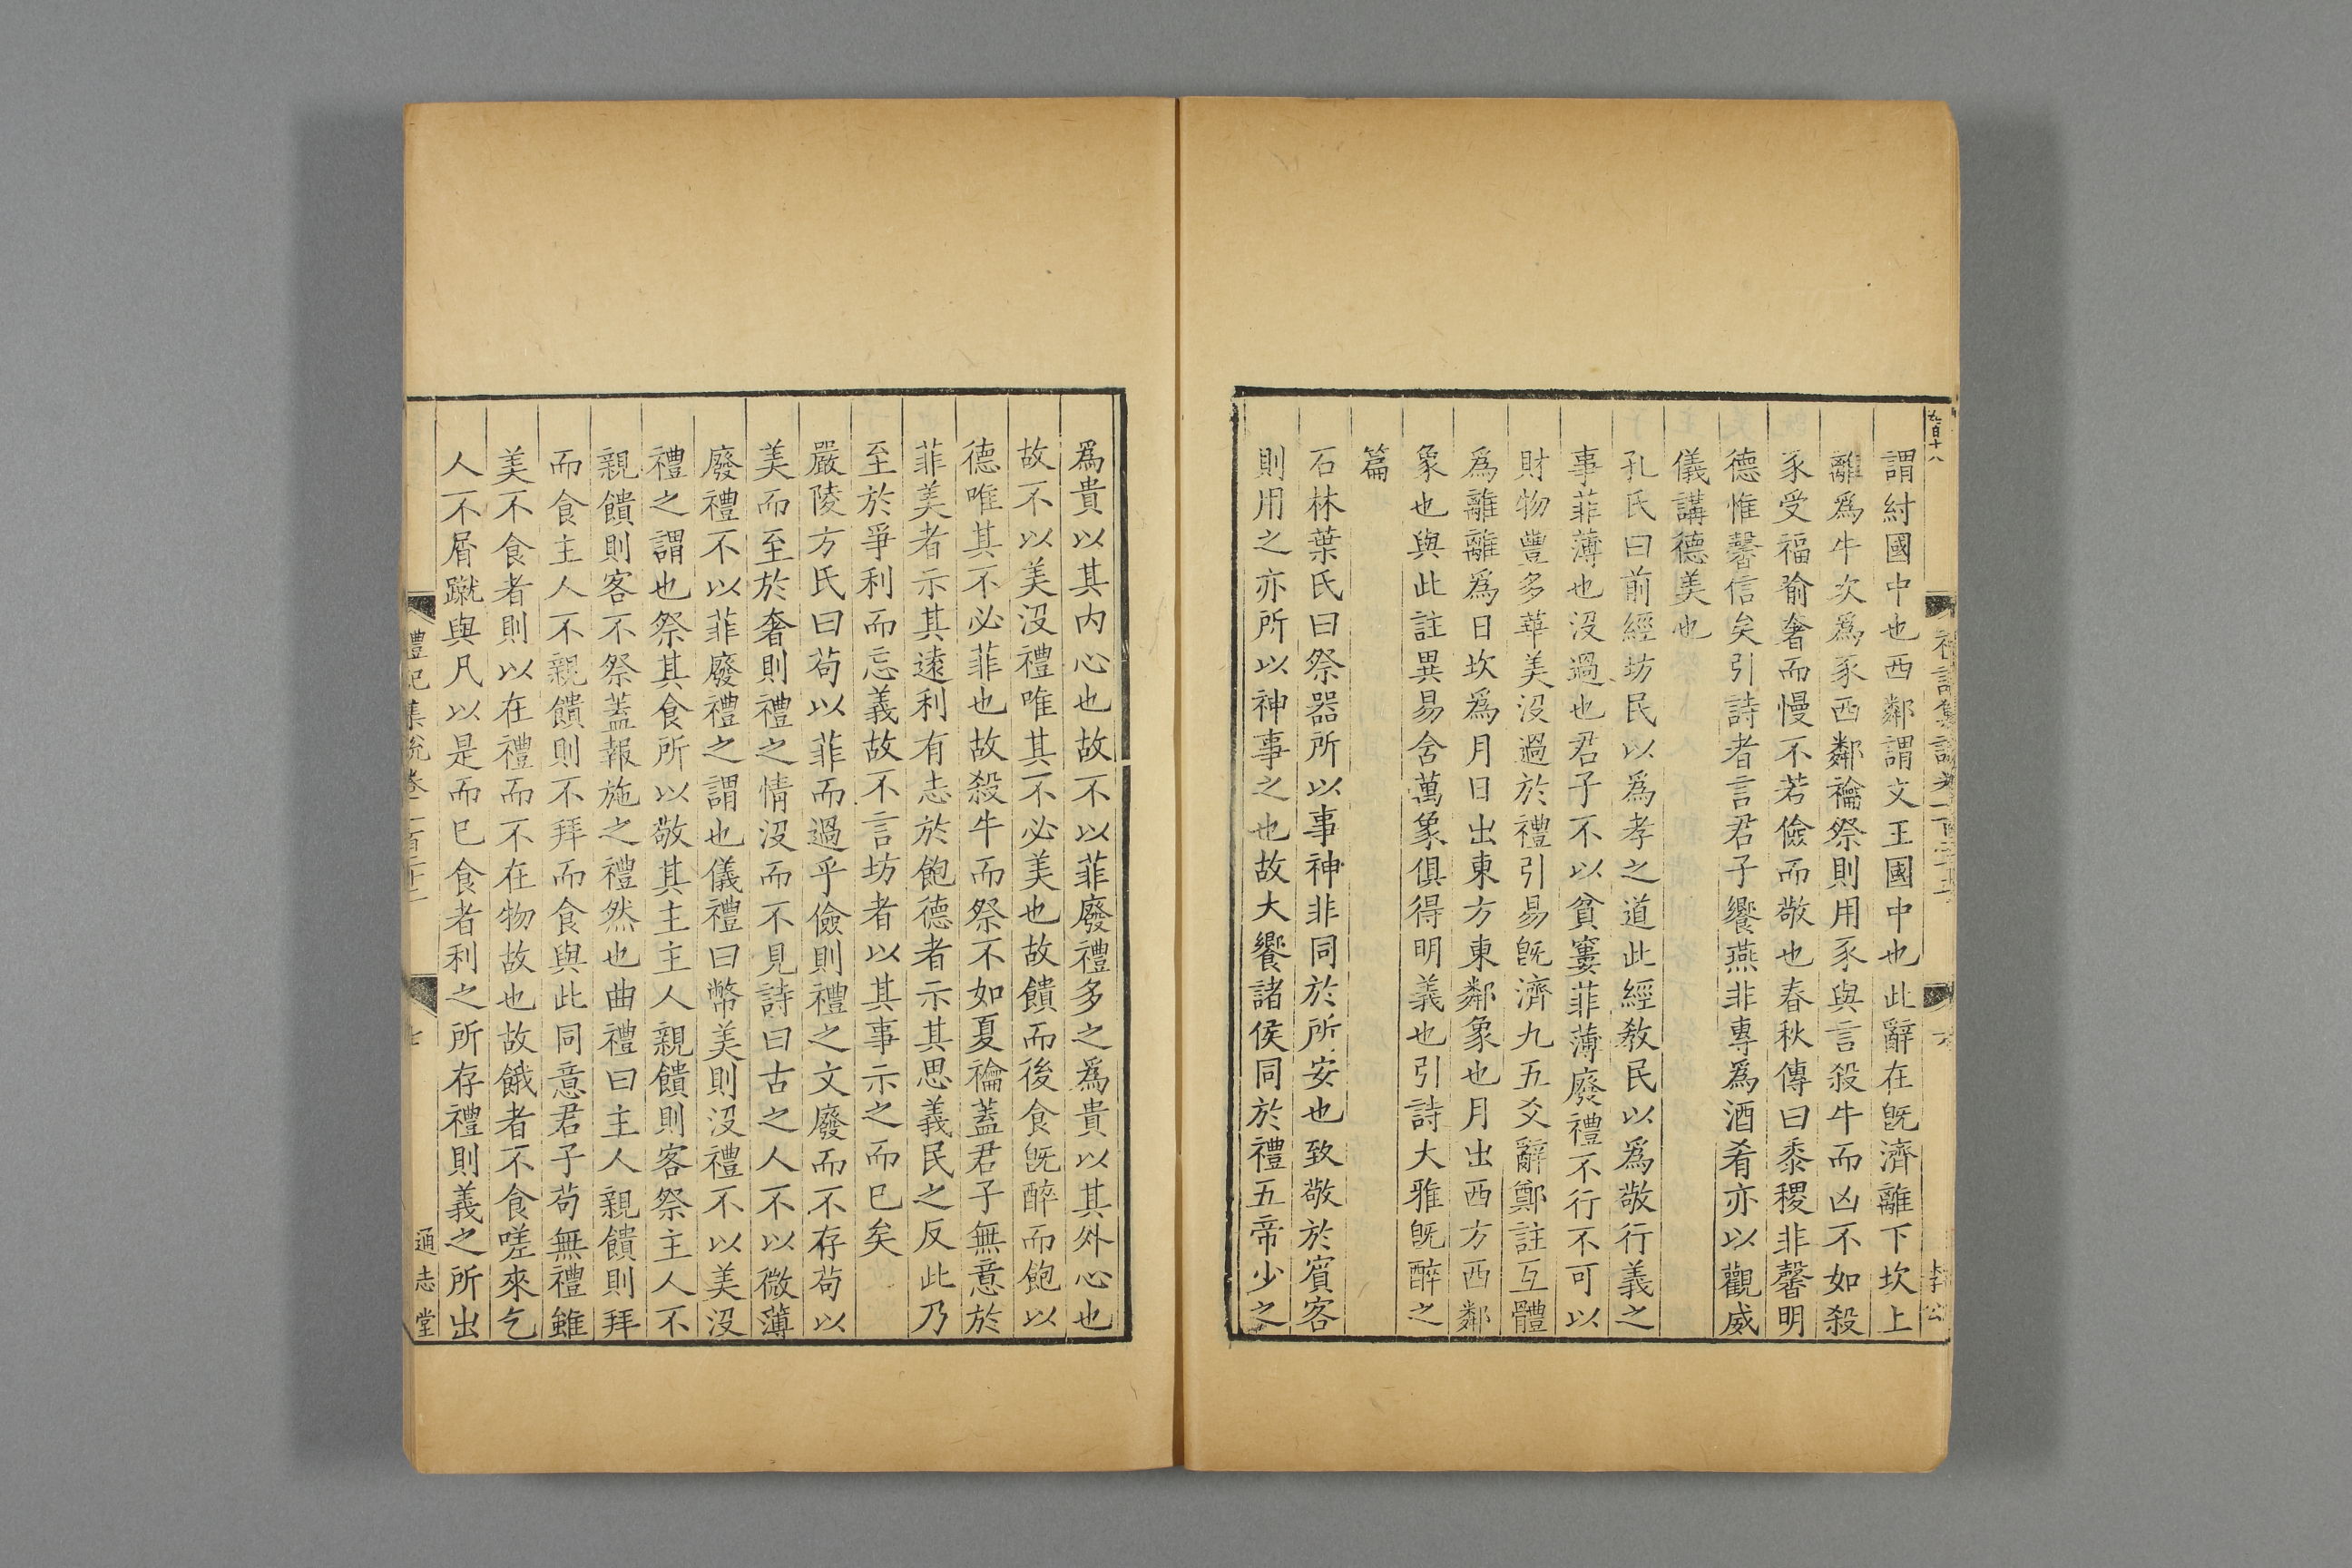 謂紂國中也西鄰謂文王國中也此辭在旣濟離下坎上
離爲牛坎爲豕西鄰禴祭則用豕與言殺牛而凶不如殺
豕受福喻奢而慢不若儉而敬也春秋傳曰黍稷非馨明
德惟馨信矣引詩者言君子饗燕非專爲酒肴亦以觀威
儀講德美也
孔氏曰前經坊民以爲孝之道此經教民以爲敬行義之
事菲薄也沒過也君子不以貧窶菲薄廢禮不行不可以
財物豐多華美沒過於禮引易旣濟九五爻辭鄭註互體
爲離離爲日坎爲月日出東方東鄰象也月出西方西鄰
象也與此註異易含萬象俱得明義也引詩大雅旣醉之
篇
石林葉氏曰祭器所以事神非同於所安也致敬於賓客
則用之亦所以神事之也故大饗諸侯同於禮五帝少之
爲貴以其內心也故不以菲廢禮多之爲貴以其外心也
故不以美沒禮唯其不必美也故饋而後食旣醉而飽以
德唯其不必菲也故殺牛而祭不如夏禴蓋君子無意於
菲美者示其遠利有志於飽德者示其思義民之反此乃
至於爭利而忘義故不言坊者以其事示之而已矣
嚴陵方氏曰苟以菲而過乎儉則禮之文廢而不存苟以
美而至於奢則禮之情沒而不見詩曰古之人不以微薄
廢禮不以菲廢禮之謂也儀禮曰幣美則沒禮不以美沒
禮之謂也祭其食所以敬其主主人親饋則客祭主人不
親饋則客不祭蓋報施之禮然也曲禮曰主人親饋則拜
而食主人不親饋則不拜而食與此同意君子苟無禮雖
美不食者則以在禮而不在物故也故餓者不食嗟來乞
人不屑蹴與凡以是而已食者利之所存禮則義之所出
禮記集說卷一百二十
七
通志堂